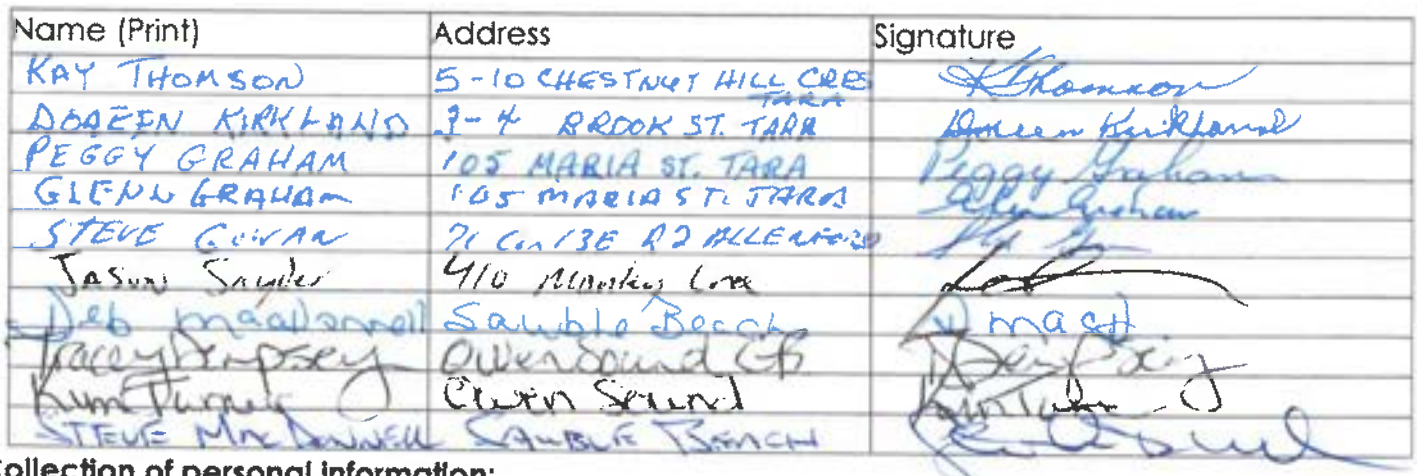 Name (Print) Address Signature
KAY THOMSON 5-10 CHESTNUT HILL CRES TARA K Thomson
DOREEN KIRKLAND BROOK ST. TARA Doreen Kirkland
PEGGY GRAHAM 105 MARIA ST. TARA Peggy Graham
GLENN GRAHAM 105 MARIA ST. TARA Glenn Graham
STEVE COWAN 71 Con 13E R2 ALLENFORD
Jason Snyder 410
Deb MacDonnell Sauble Beach D MacD
Tracey Dempsey Owen Sound T Dempsey
Kim Turner Owen Sound Kim
STEVE MACDONNELL SAUBLE BEACH
Collection of personal information: